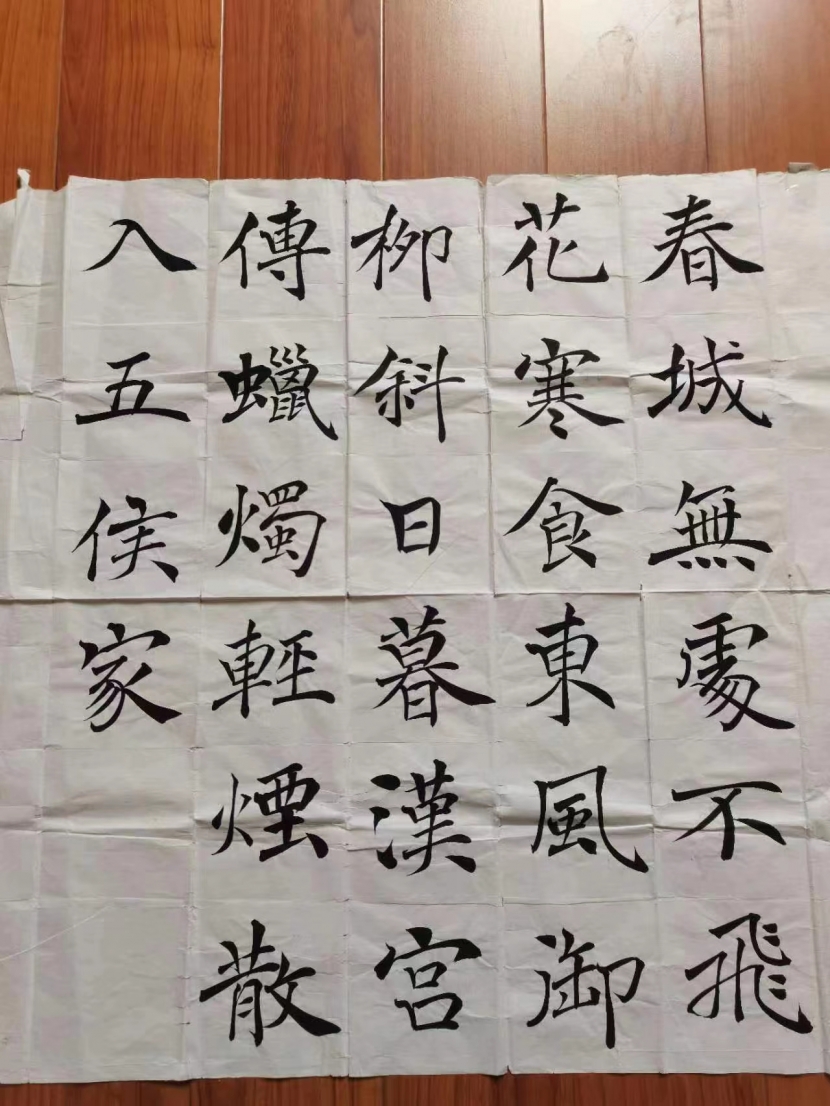 春城無處不飛
花寒食東風御
柳斜日暮漢宮
傳蠟燭輕煙散
入五侯家